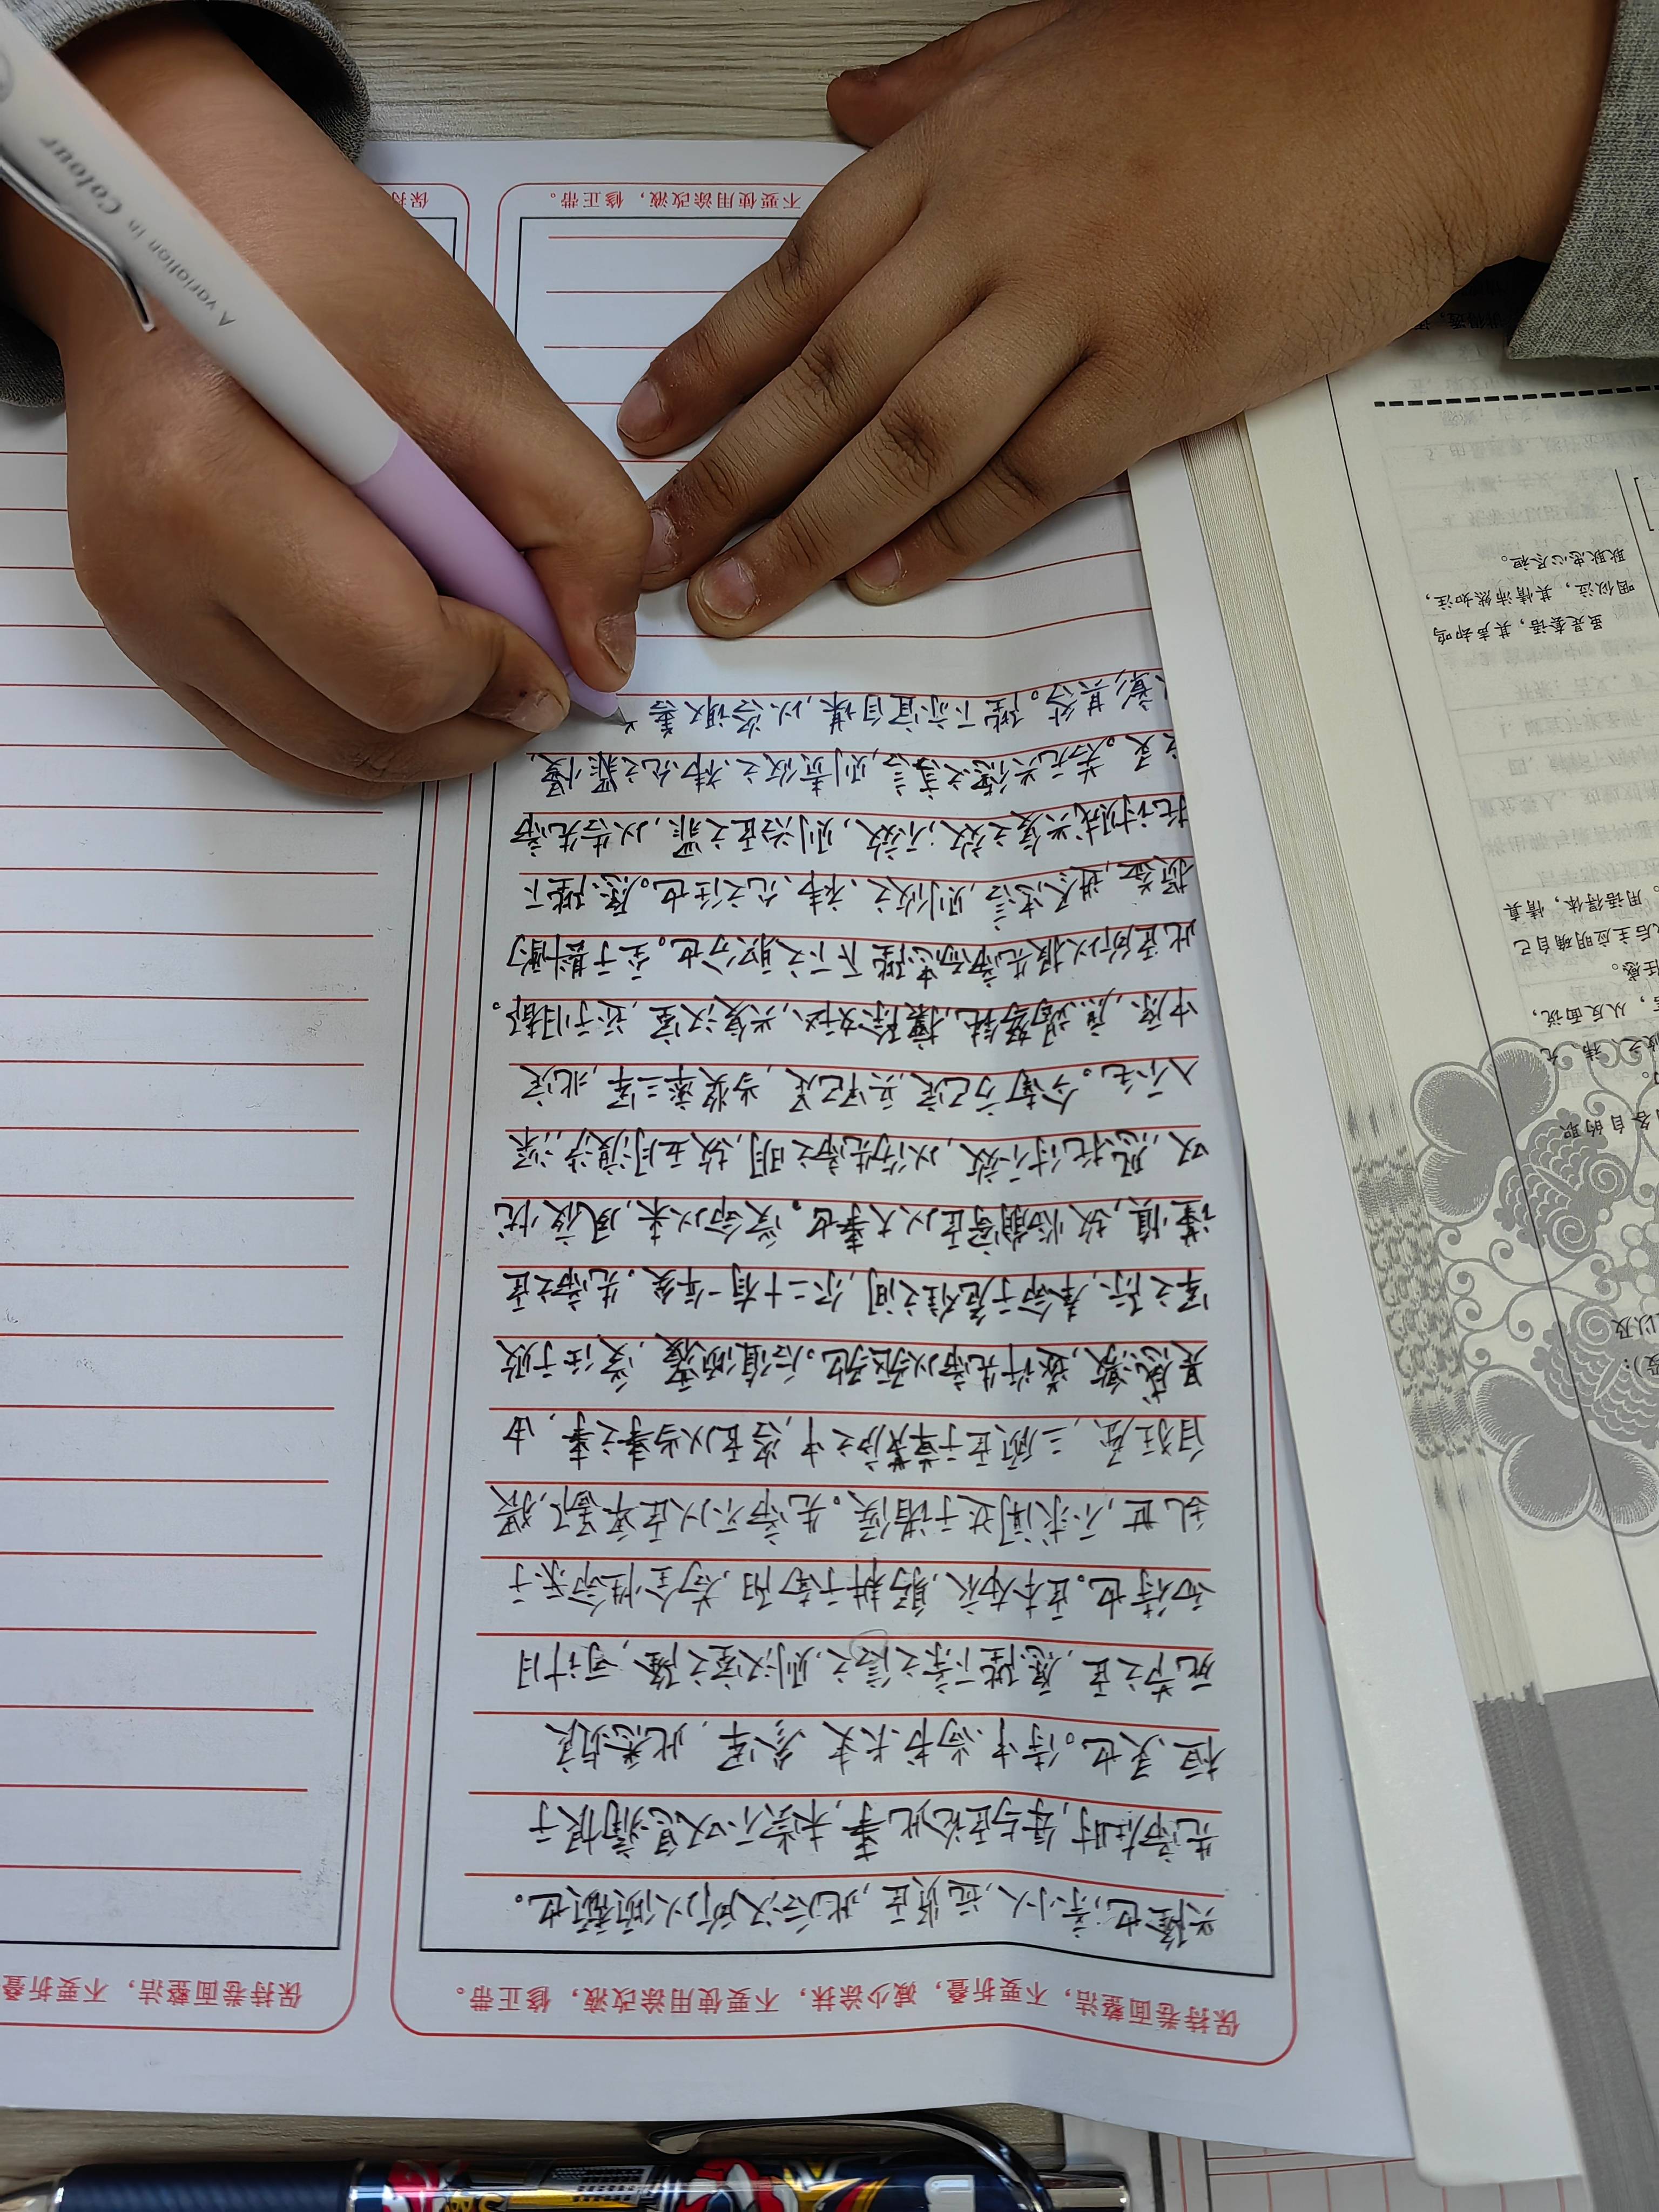 保持卷面整洁，不要折叠，减少涂抹，不要使用涂改液、修正带。
兴隆也；亲小人，远贤臣，此后汉所以倾颓也。
先帝在时，每与臣论此事，未尝不叹息痛恨于
桓、灵也。侍中、尚书、长史、参军，此悉贞良
死节之臣，愿陛下亲之、信之，则汉室之隆，可计日
而待也。臣本布衣，躬耕于南阳，苟全性命于
乱世，不求闻达于诸侯。先帝不以臣卑鄙，猥
自枉屈，三顾臣于草庐之中，咨臣以当事之事，由
是感激，遂许先帝以驱驰。后值倾覆，受任于败
军之际，奉命于危难之间，尔二十有一年矣。先帝之臣
谨慎，故临崩寄臣以大事也。受命以来，夙夜忧
叹，恐托付不效，以伤先帝之明，故五月渡泸，深
入不毛。今南方已定，兵甲已足，当奖率三军，北定
中原，庶竭驽钝，攘除奸凶，兴复汉室，还于旧都。
此臣所以报先帝而忠陛下之职分也。至于斟酌
损益，进尽忠言，则攸之、祎、允之任也。愿陛下
托讨贼兴复之效，不效，则治臣之罪，以告先帝
之灵。若无兴德之言，则责攸之、祎、允之罪慢，
彰其咎。陛下亦宜自谋，以咨诹善
不要使用涂改液、修正带。
保持卷面整洁，不要折叠
虽是套语，其声却呜
咽似泣，其情沛然如注，
耿耿忠心尽袒。
各自的职
从反面说，
后主应明确自己
用语得体，情真
A variation in Colour